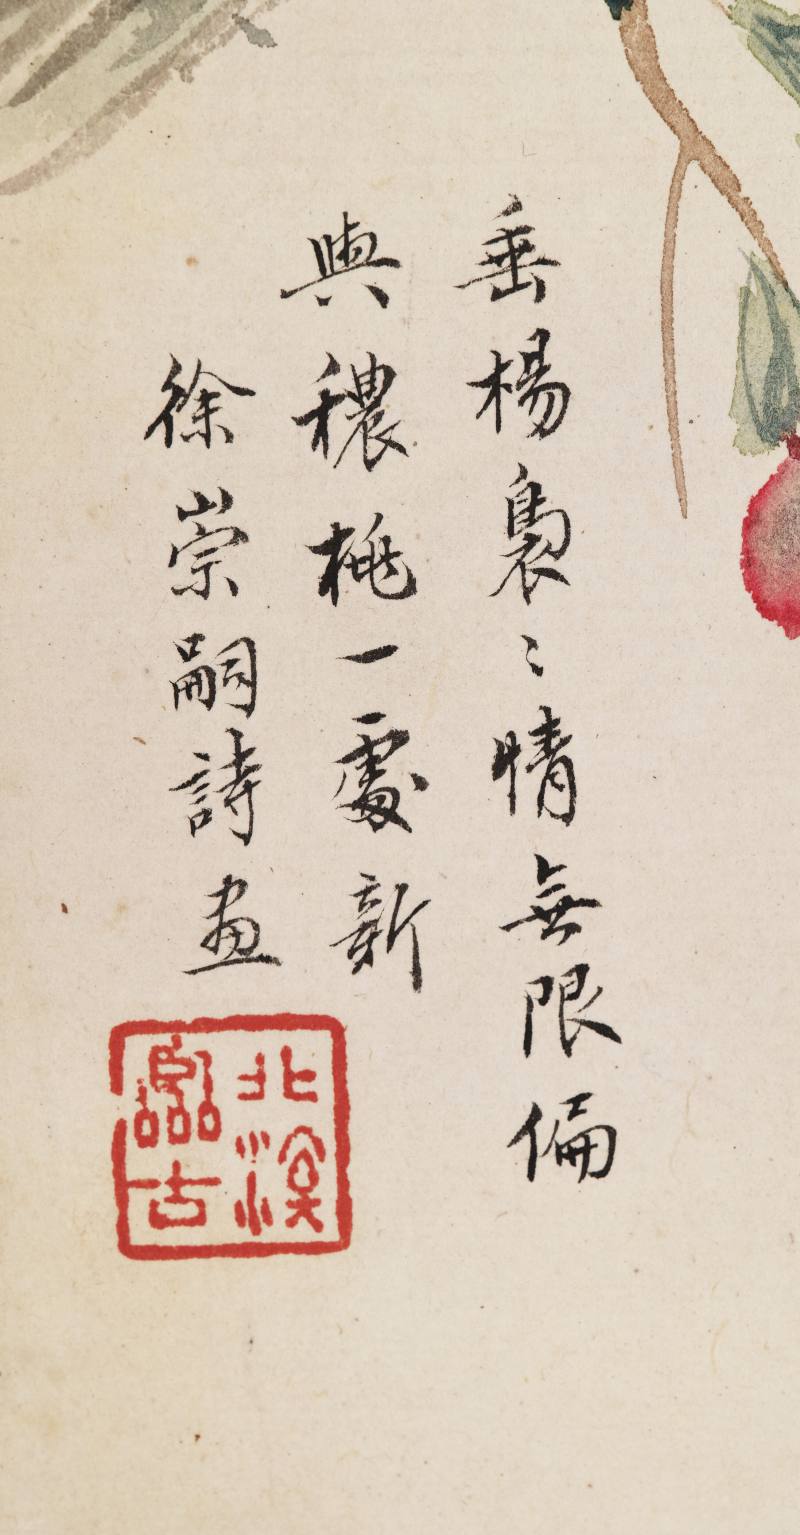 垂楊裊〻情無限偏
與穠桃一處新
徐崇嗣詩畫
北溪
臨古